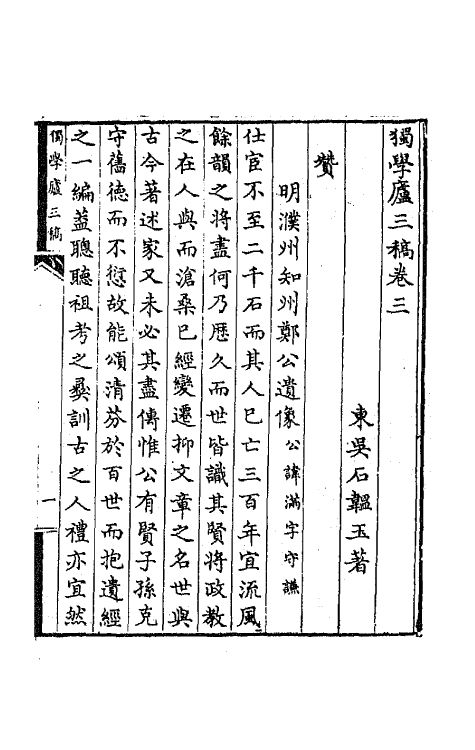 獨學廬三稿卷三
東吳石韞玉著
贊
明濮州知州鄭公遺像公諱滿字守謙
仕宦不至二千石而其人已亡三百年宜流風
餘韻之將盡何乃歷久而世皆識其賢將政教
之在人與而滄桑已經變遷抑文章之名世與
古今著述家又未必其盡傳惟公有賢子孫克
守舊德而不愆故能頌清芬於百世而抱遺經
之一編葢聰聽祖考之彝訓古之人禮亦宜然
獨學廬三稿
一